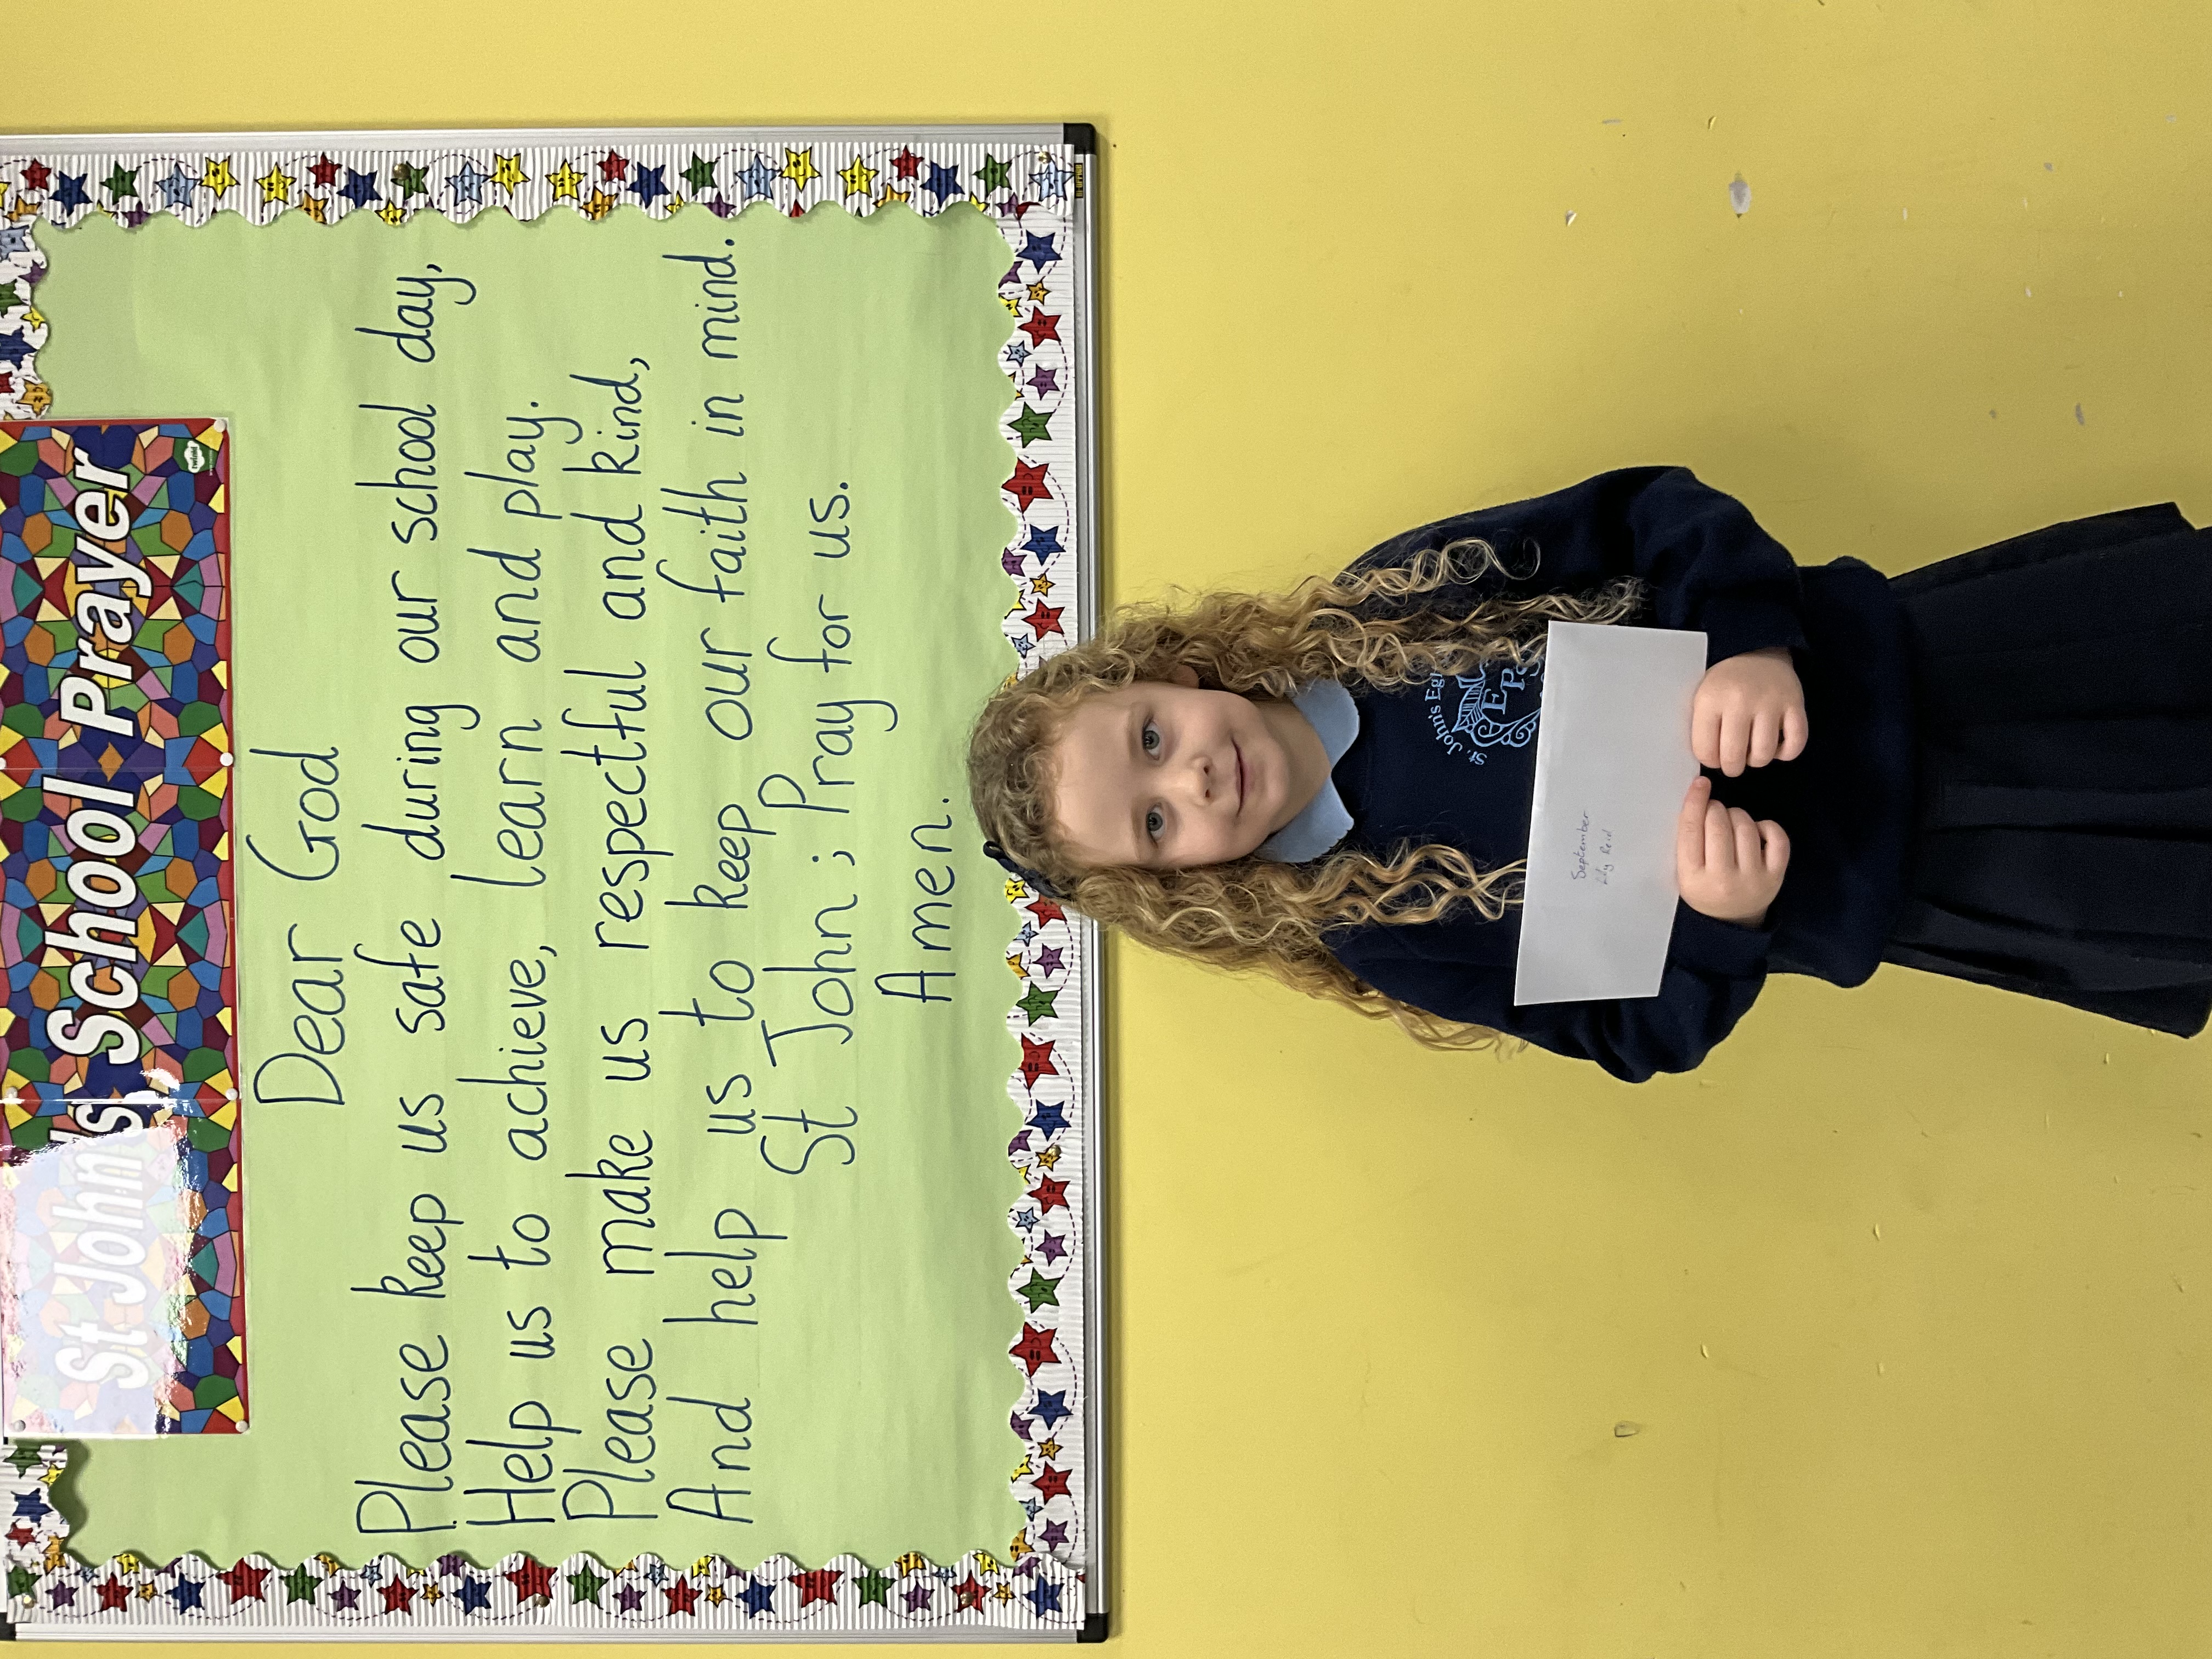 St John's School Prayer
Dear God
Please keep us safe during our school day,
Help us to achieve, learn and play.
Please make us respectful and kind,
And help us to keep our faith in mind.
St John; Pray for us.
Amen.
St. John's Egl
EPS
September
twinkl